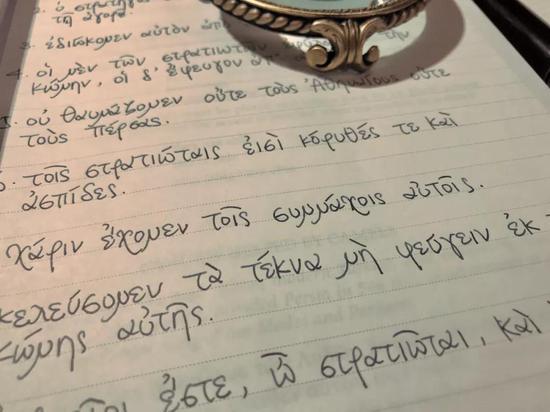 2. ὁ στρατηγὸ
τῇ ἀγορᾷ.
3. ἐδιώκομεν αὐτὸν
4. οἱ μὲν τῶν στρατιωτῶν τὴν
κώμην, οἱ δ' ἔφευγον ἀπ'
οὐ θαυμάζομεν οὔτε τοὺς Ἀθηναίους οὔτε
τοὺς πέρσας.
τοῖς στρατιώταις εἰσὶ κόρυθές τε καὶ
ἀσπίδες.
χάριν ἔχομεν τοῖς συμμάχοις αὐτοῖς.
κελεύσομεν τὰ τέκνα μὴ φεύγειν ἐκ τ
κώμης αὐτῆς.
ἐστε, ὦ στρατιῶται, καὶ